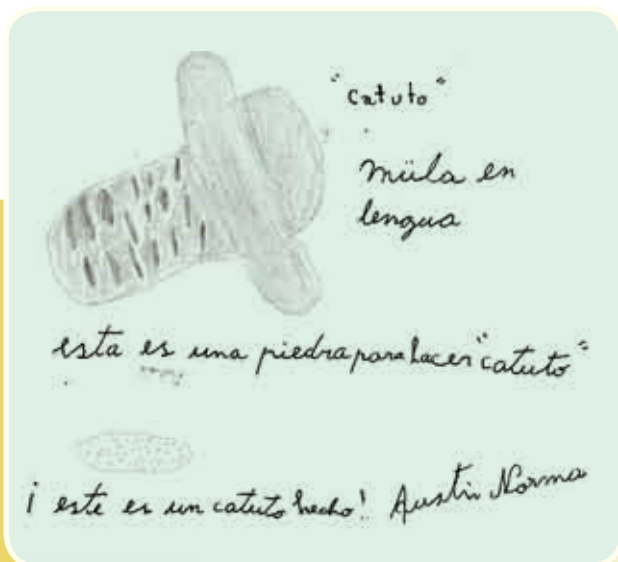 "catuto"
müla en
lengua
esta es una piedra para hacer "catuto"
¡este es un catuto hecho! Austin Norma